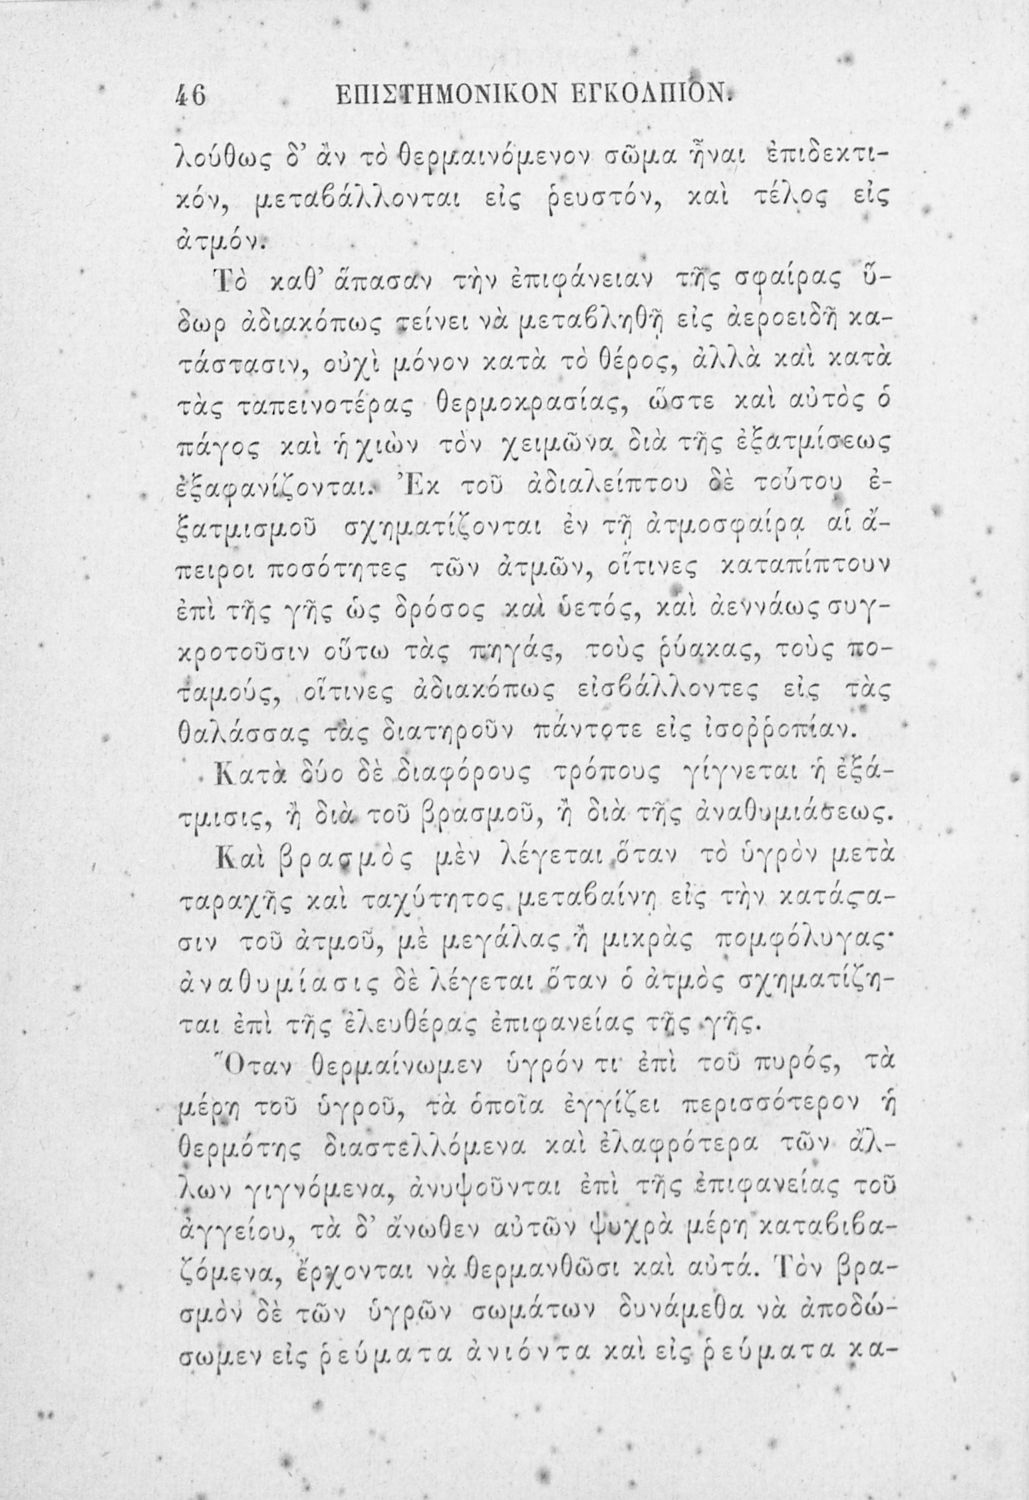 46 ΕΠΙΣΤΗΜΟΝΙΚΟΝ ΕΓΚΟΛΠΙΟΝ.
λούθως δ’ ἂν τὸ θερμαινόμενον σῶμα ἦναι ἐπιδεκτι-
κόν, μεταβάλλονται εἰς ῥευστόν, καὶ τέλος εἰς
ἀτμόν.
Τὸ καθ’ ἅπασαν τὴν ἐπιφάνειαν τῆς σφαίρας ὕ-
δωρ ἀδιακόπως τείνει νὰ μεταβληθῇ εἰς ἀεροειδῆ κα-
τάστασιν, οὐχὶ μόνον κατὰ τὸ θέρος, ἀλλὰ καὶ κατὰ
τὰς ταπεινοτέρας θερμοκρασίας, ὥστε καὶ αὐτὸς ὁ
πάγος καὶ ἡ χιὼν τὸν χειμῶνα διὰ τῆς ἐξατμίσεως
ἐξαφανίζονται. Ἐκ τοῦ ἀδιαλείπτου δὲ τούτου ἐ-
ξατμισμοῦ σχηματίζονται ἐν τῇ ἀτμοσφαίρᾳ αἱ ἄ-
πειροι ποσότητες τῶν ἀτμῶν, οἵτινες καταπίπτουν
ἐπὶ τῆς γῆς ὡς δρόσος καὶ ὑετός, καὶ ἀεννάως συγ-
κροτοῦσιν οὕτω τὰς πηγάς, τοὺς ῥύακας, τοὺς πο-
ταμούς, οἵτινες ἀδιακόπως εἰσβάλλοντες εἰς τὰς
θαλάσσας τὰς διατηροῦν πάντοτε εἰς ἰσοῤῥοπίαν.
Κατὰ δύο δὲ διαφόρους τρόπους γίγνεται ἡ ἐξά-
τμισις, ἢ διὰ τοῦ βρασμοῦ, ἢ διὰ τῆς ἀναθυμιάσεως.
Καὶ βρασμὸς μὲν λέγεται ὅταν τὸ ὑγρὸν μετὰ
ταραχῆς καὶ ταχύτητος μεταβαίνῃ εἰς τὴν κατάϛα-
σιν τοῦ ἀτμοῦ, μὲ μεγάλας ἢ μικρὰς πομφόλυγας·
ἀναθυμίασις δὲ λέγεται ὅταν ὁ ἀτμὸς σχηματίζη-
ται ἐπὶ τῆς ἐλευθέρας ἐπιφανείας τῆς γῆς.
Ὅταν θερμαίνωμεν ὑγρόν τι ἐπὶ τοῦ πυρός, τὰ
μέρη τοῦ ὑγροῦ, τὰ ὁποῖα ἐγγίζει περισσότερον ἡ
θερμότης διαστελλόμενα καὶ ἐλαφρότερα τῶν ἄλ-
λων γιγνόμενα, ἀνυψοῦνται ἐπὶ τῆς ἐπιφανείας τοῦ
ἀγγείου, τὰ δ’ ἄνωθεν αὐτῶν ψυχρὰ μέρη καταβιβα-
ζόμενα, ἔρχονται νὰ θερμανθῶσι καὶ αὐτά. Τὸν βρα-
σμὸν δὲ τῶν ὑγρῶν σωμάτων δυνάμεθα νὰ ἀποδώ-
σωμεν εἰς ῥεύματα ἀνιόντα καὶ εἰς ῥεύματα κα-